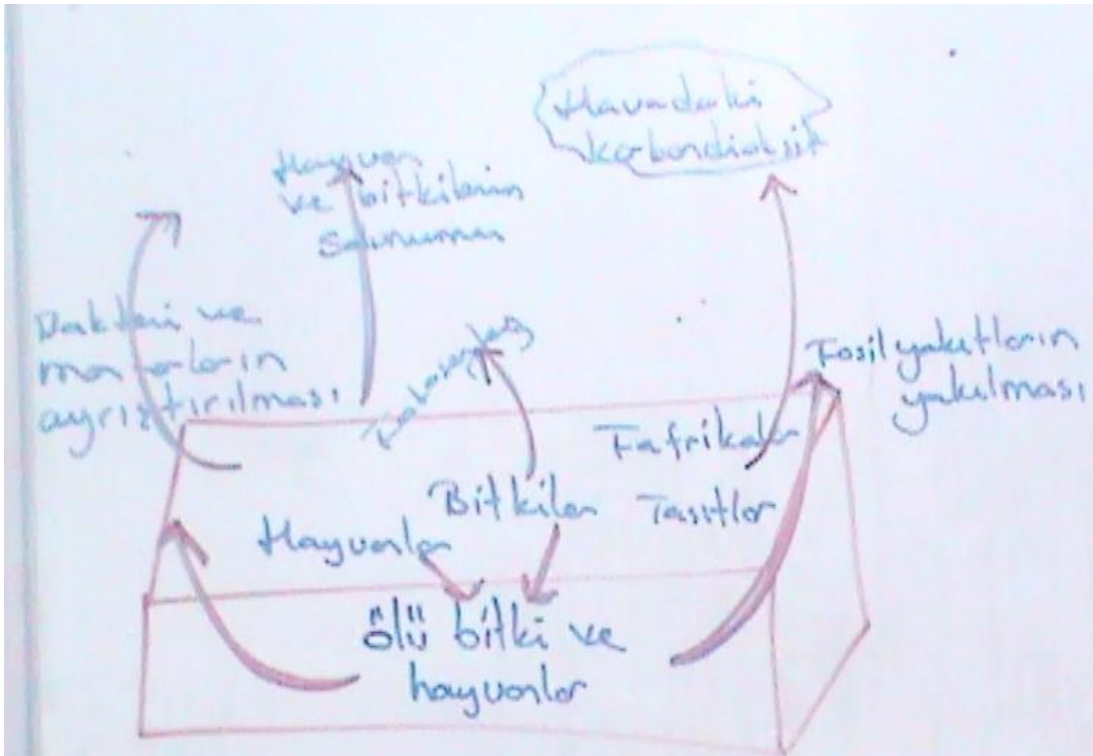 Havadaki
karbondioksit
Hayvan
ve bitkilerin
solunumu
Bakteri ve
mantarların
ayrıştırılması
Fosil yakıtların
yakılması
Fafrikalar
Bitkiler
Tasıtlar
Hayvanlar
ölü bitki ve
hayvanlar